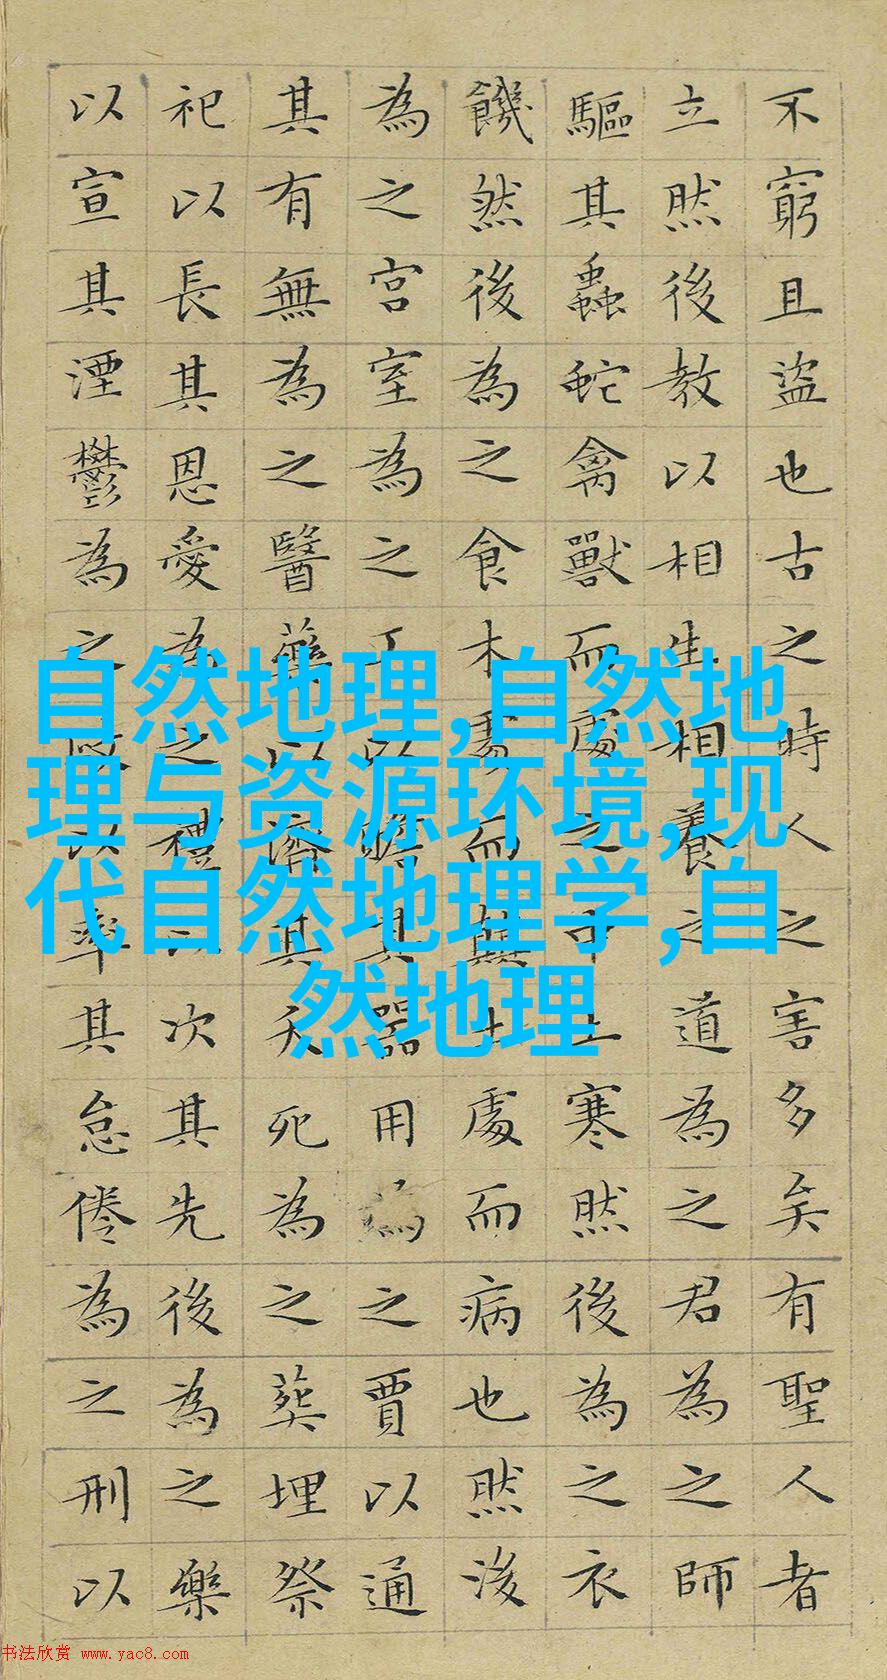 不窮且盜也古之時人之害多矣有聖人者
立然後教以相生相養之道為之君為之師
驅其蟲蛇禽獸而處之中土寒然後為之衣
饑然後為之食木處而顛土處而病也然後
為之宮室為之工以贍其器用為之賈以通
其有無為之醫藥以濟其夭死為之葬埋祭
祀以長其恩愛為之禮以次其先後為之樂
以宣其湮鬱為之政以率其怠倦為之刑以
自然地理,自然地
理与资源环境,现
代自然地理学,自
然地理
书法欣赏 www.yac8.com